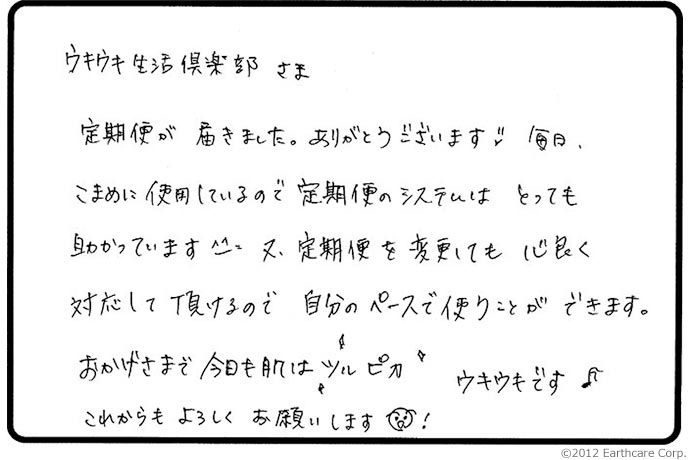 ウキウキ生活倶楽部 さま
定期便が 届きました。ありがとうございます 毎日、
こまめに使用しているので定期便のシステムは とっても
助かっています^^= 又、定期便を変更しても 心良く
対応して頂けるので 自分のペースで使うことが できます。
おかげさまで今日も肌はツルピカ ウキウキです♪
これからも よろしく お願いします!
©2012 Earthcare Corp.